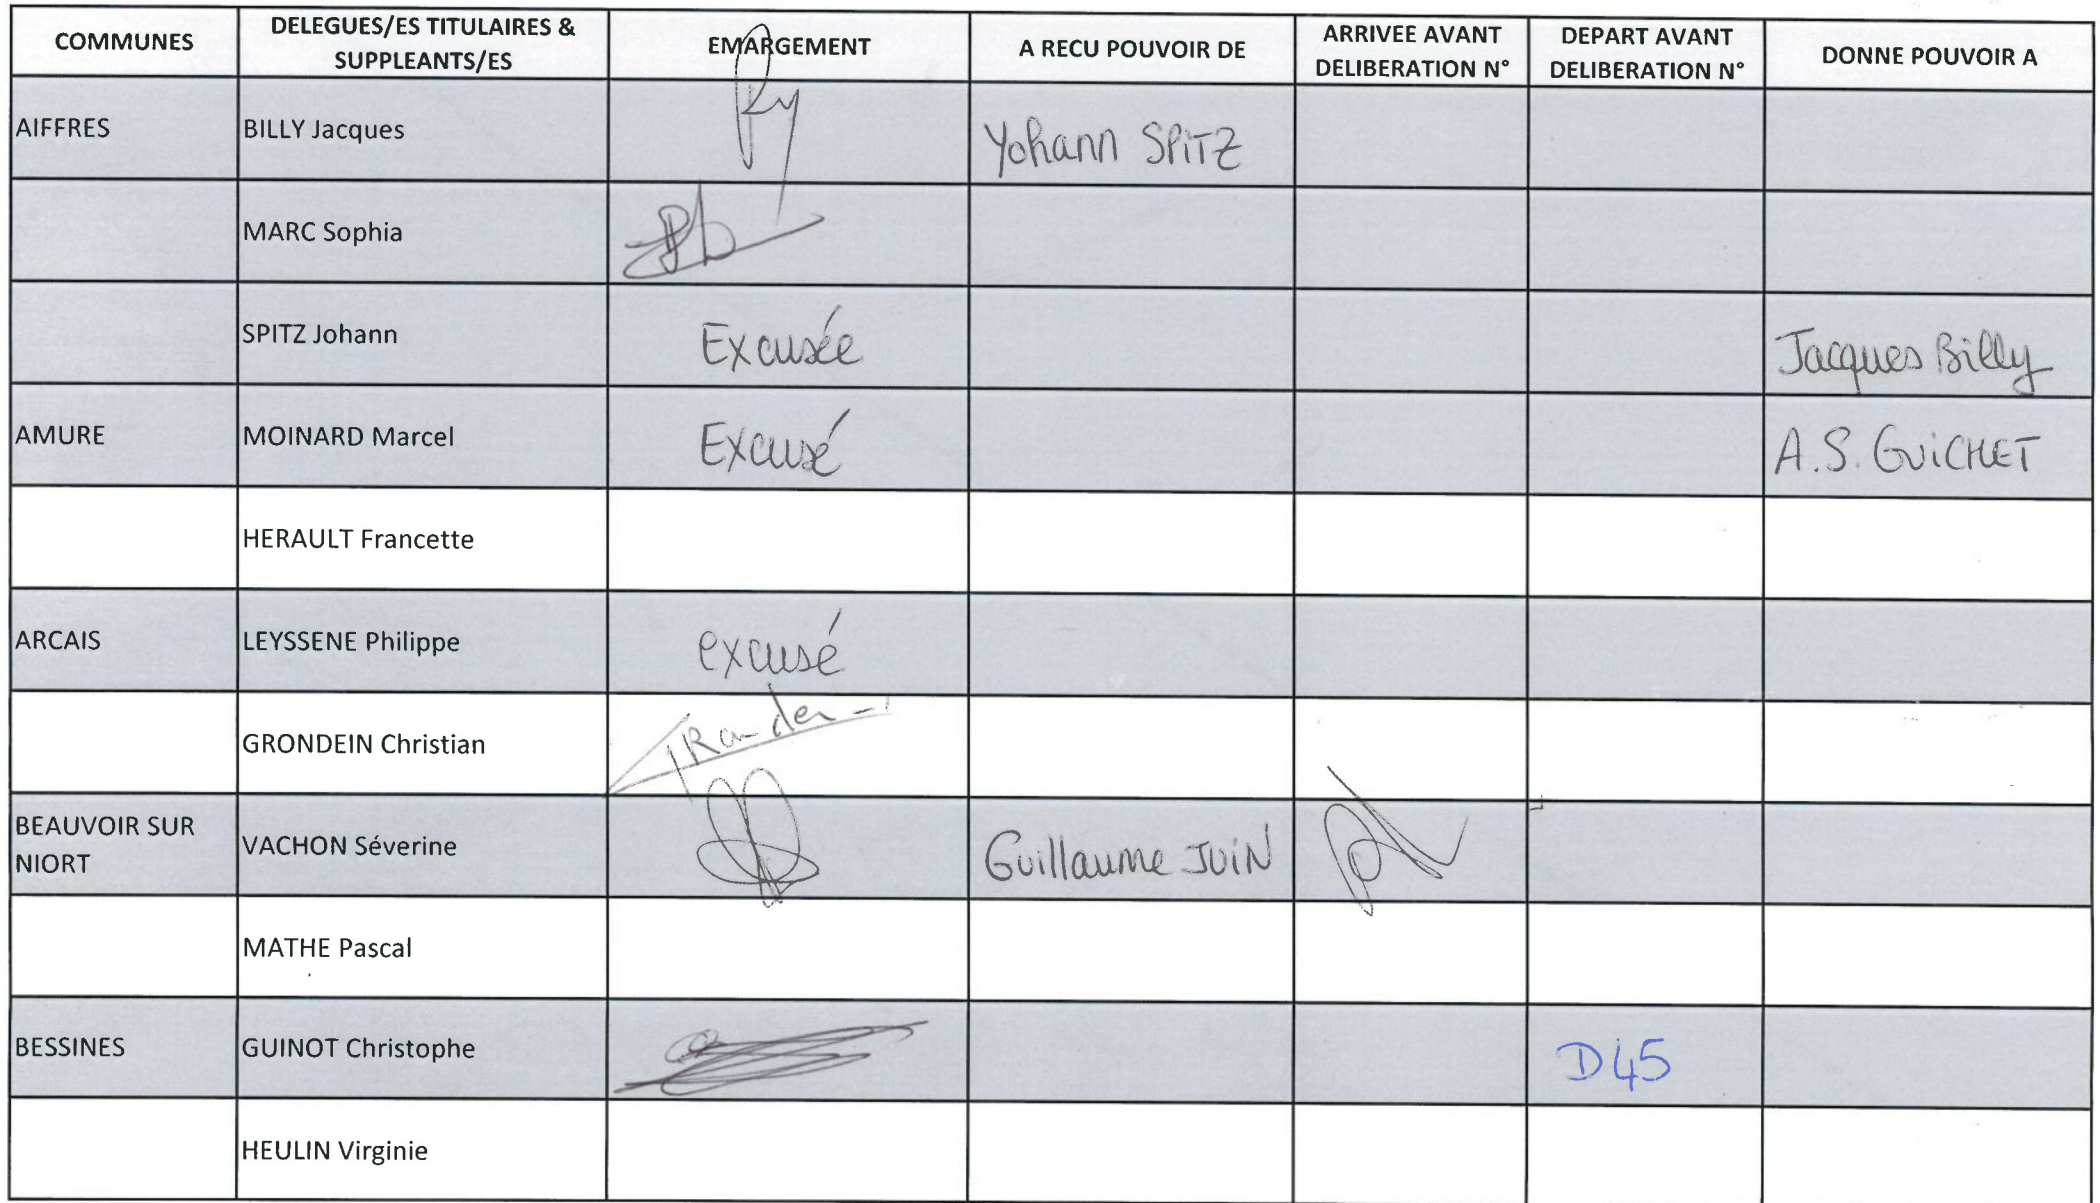 COMMUNES
DELEGUES/ES TITULAIRES &
SUPPLEANTS/ES
EMARGEMENT
A RECU POUVOIR DE
ARRIVEE AVANT
DELIBERATION N°
DEPART AVANT
DELIBERATION N°
DONNE POUVOIR A
AIFFRES
BILLY Jacques
Yohann SPITZ
MARC Sophia
SPITZ Johann
Excusée
Jacques Billy
AMURE
MOINARD Marcel
Excusé
A.S. GUICHET
HERAULT Francette
ARCAIS
LEYSSENE Philippe
excusé
GRONDEIN Christian
BEAUVOIR SUR
NIORT
VACHON Séverine
Guillaume JUIN
MATHE Pascal
BESSINES
GUINOT Christophe
D45
HEULIN Virginie